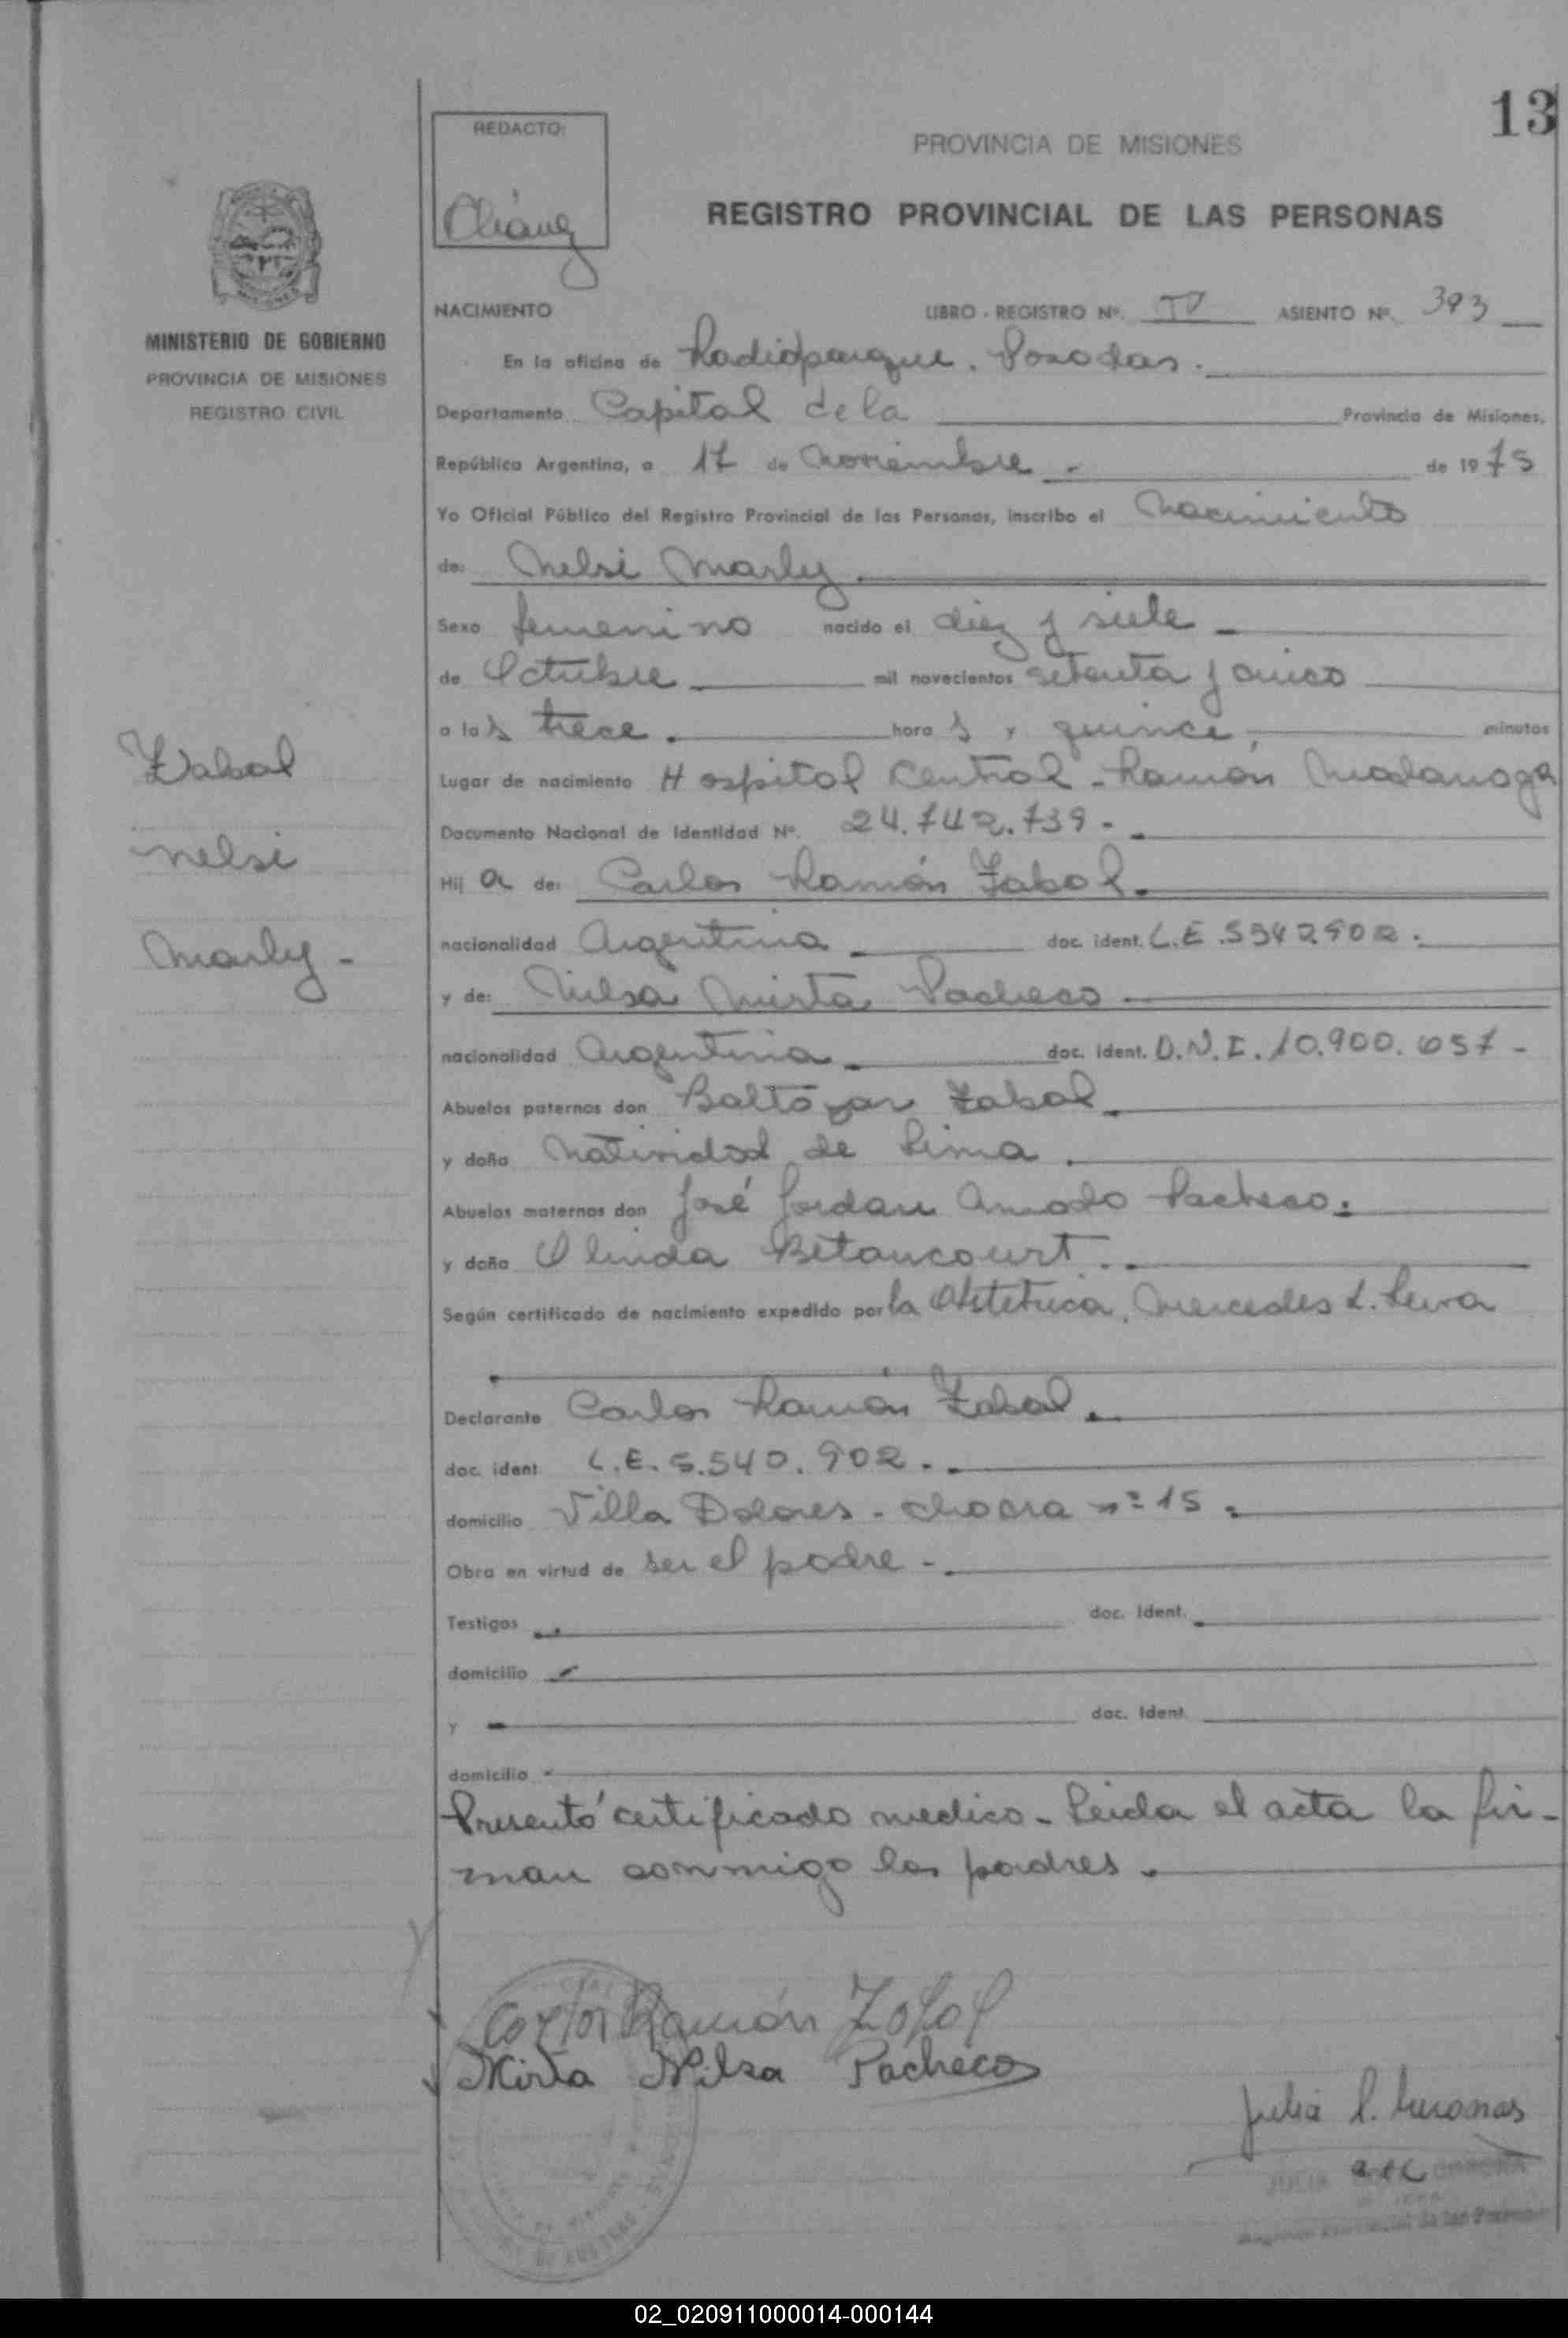 13
REDACTO:
PROVINCIA DE MISIONES
REGISTRO PROVINCIAL DE LAS PERSONAS
MINISTERIO DE GOBIERNO
PROVINCIA DE MISIONES
REGISTRO CIVIL
NACIMIENTO LIBRO - REGISTRO Nº. IV ASIENTO Nº. 393
En la oficina de Radioparque. Posadas.
Departamento Capital de la Provincia de Misiones,
República Argentina, a 17 de Noviembre - de 1975
Yo Oficial Público del Registro Provincial de las Personas, inscribo el Nacimiento
de: Nelsi Marly
Sexo femenino nacido el diez y siete
de Octubre mil novecientos setenta y cinco
a las trece hora s y quince, minutos
Lugar de nacimiento Hospital Central - Ramón Madariaga
Documento Nacional de Identidad Nº. 24.742.739 -
Hij a de: Carlos Ramón Zabal
nacionalidad Argentina doc. ident. L.E.
y de: Nilsa Mirta Pacheco
nacionalidad Argentina doc. ident. D.N.I. 10.900.657 -
Abuelos paternos don Baltazar Zabal
y doña Natividad de Lima
Abuelos maternos don José Jordan Amado Pacheco.
y doña Olinda Betancourt
Según certificado de nacimiento expedido por la Obstetrica, Mercedes L. Leiva
Declarante Carlos Ramón Zabal
doc. ident. L.E. 5.540.902 -
domicilio Villa Dolores - chacra nº 15
Obra en virtud de ser el padre -
Testigos doc. Ident.
domicilio
y doc. Ident.
domicilio
Presentó certificado medico - Leida el acta la fir-
man conmigo los padres
Zabal
Nelsi
Marly -
Carlos Ramón Zabal
Mirta Nilsa Pacheco
02_020911000014-000144